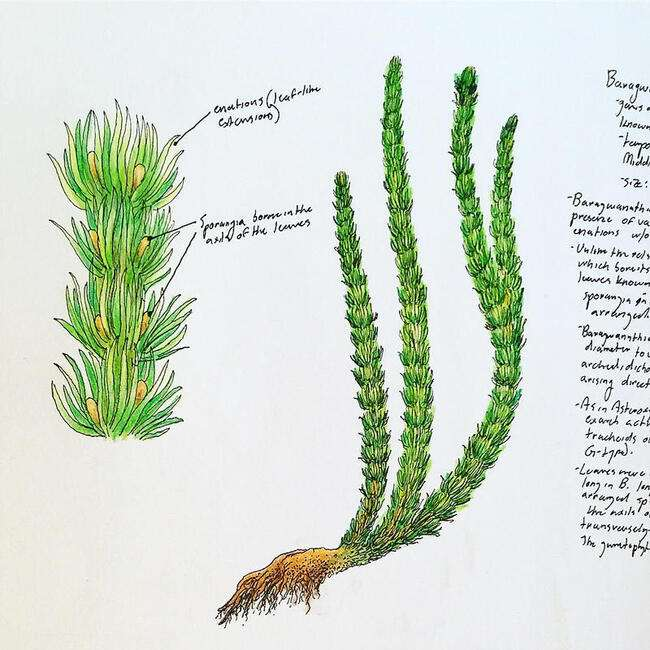 enations (leaf-like
extensions)
Sporangia borne in the
axils of the leaves
Baragw
-genus o
known
-tempo
Midd
-size:
-Baragwanathi
presence of va
enations w/o
-Unlike the rel
which bore its
leaves known
sporangia in
arranged
-Baragwanathi
diameter to
arched, dicho
arising direct
-As in Asterox
exarch act
tracheids o
G-type).
-Leaves were
long in B. lon
arranged sp
the axils o
transversely
The gametophy